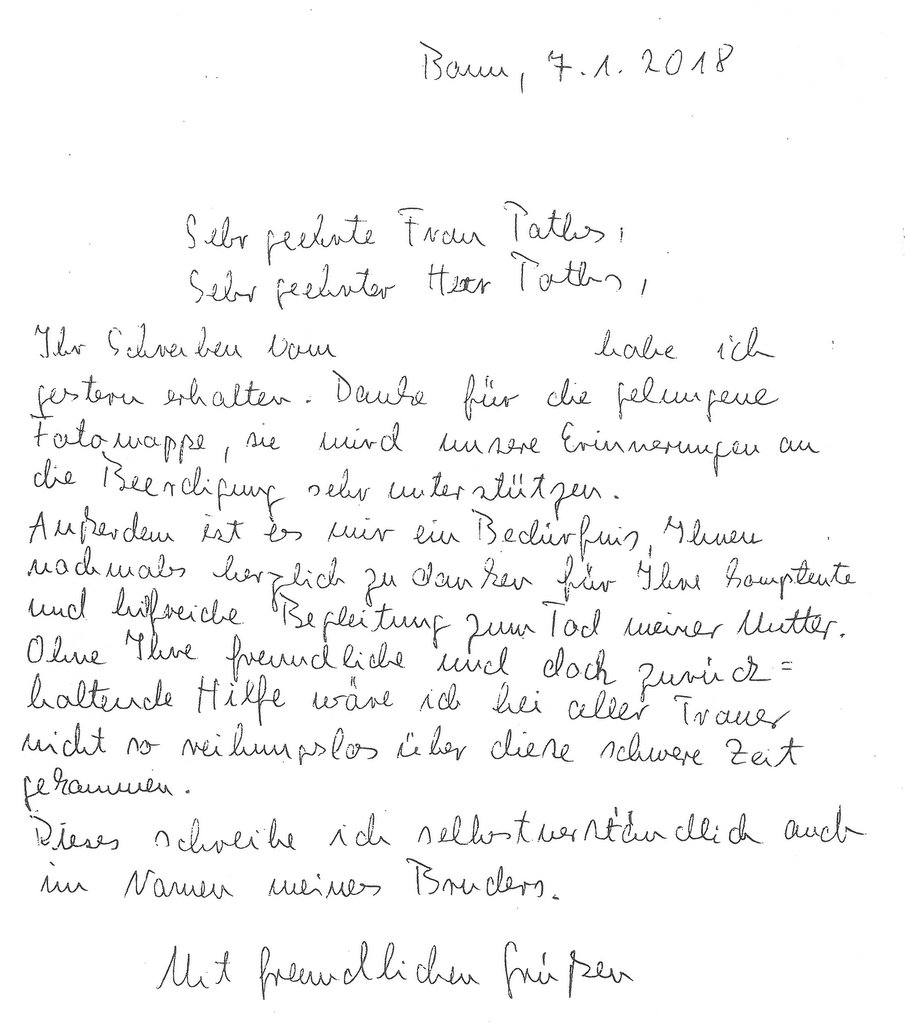 Bonn, 7.1.2018
Sehr geehrte Frau Pathos,
Sehr geehrter Herr Pathos,
Ihr Schreiben vom habe ich
gestern erhalten. Danke für die gelungene
Fotomappe, sie wird unsere Erinnerungen an
die Beerdigung sehr unterstützen.
Außerdem ist es mir ein Bedürfnis, Ihnen
nochmals herzlich zu danken für Ihre komptente
und hilfreiche Begleitung zum Tod meiner Mutter.
Ohne Ihre freundliche und doch zurück=
haltende Hilfe wäre ich bei aller Trauer
nicht so reibungslos über diese schwere Zeit
gekommen.
Dieses schreibe ich selbstverständlich auch
im Namen meines Bruders.
Mit freundlichen Grüßen